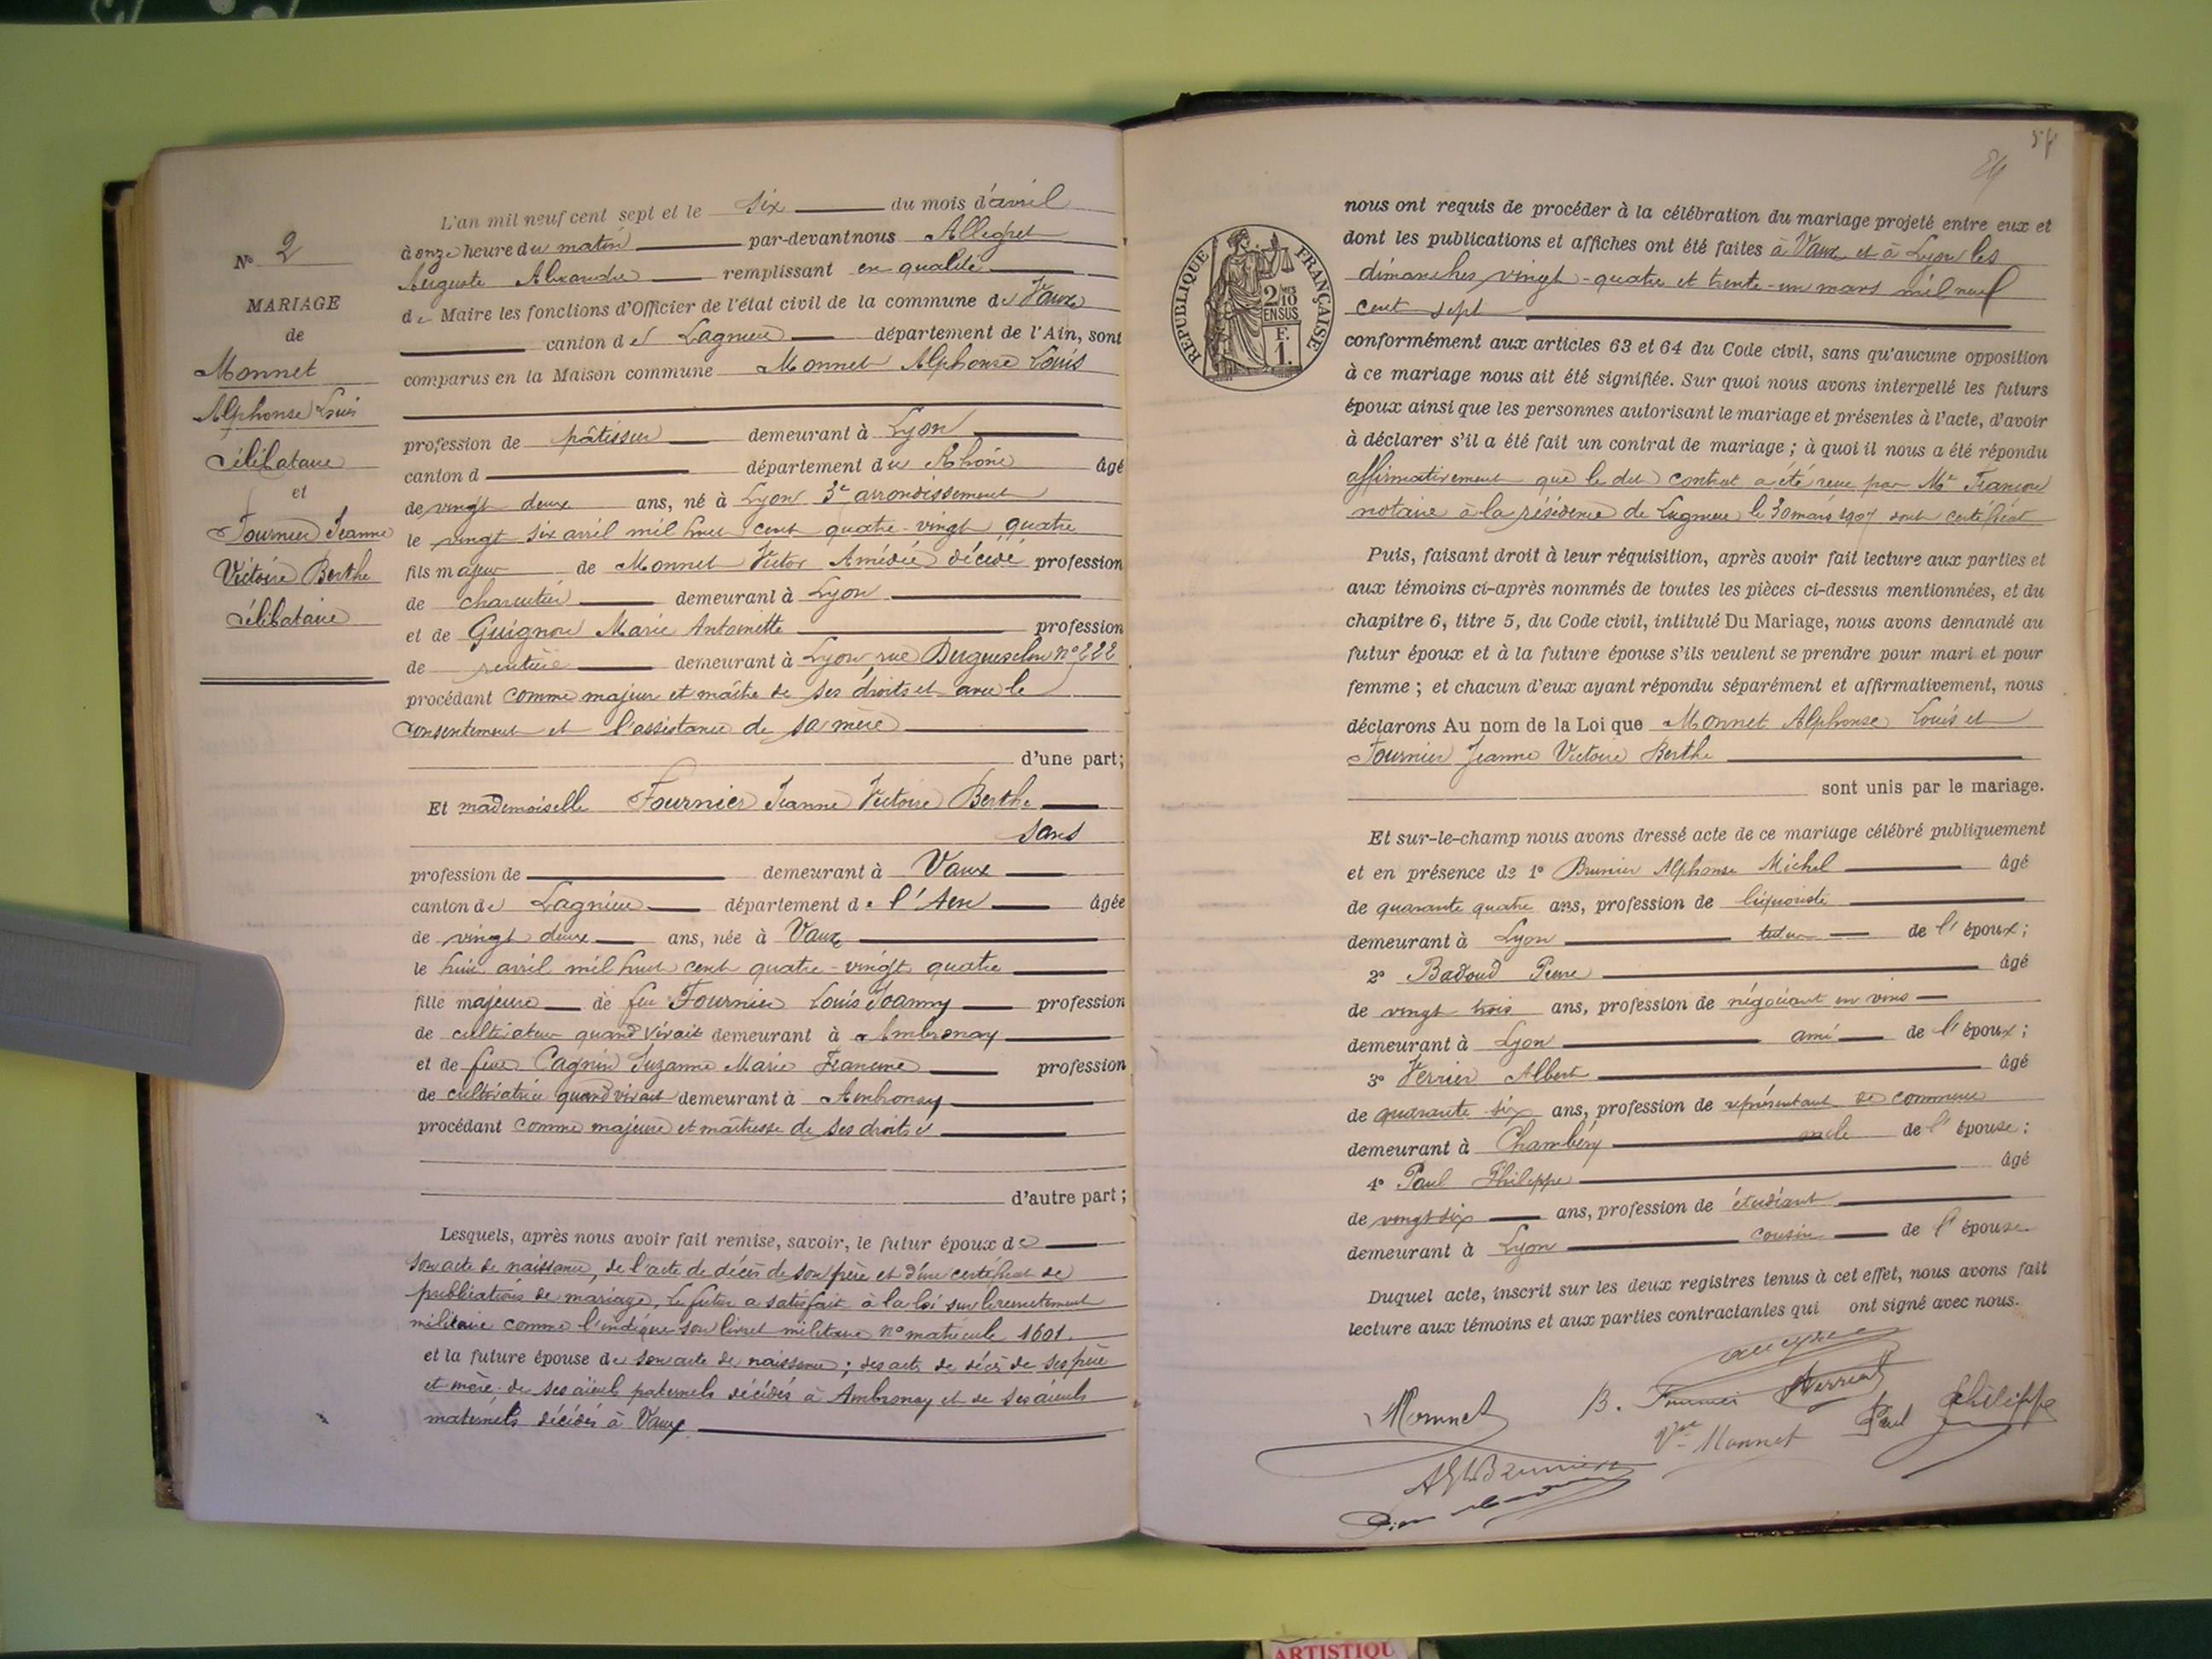 N° 2
MARIAGE
de
Monnet
Alphonse Louis
célibataire
et
Fournier Jeanne
Victoire Berthe
célibataire
L'an mil neuf cent sept et le six du mois d'avril
à onze heure du matin par-devant nous Allégret
Auguste Alexandre remplissant en qualité
de Maire les fonctions d'Officier de l'état civil de la commune de Vaux
canton de Lagnieu département de l'Ain, sont
comparus en la Maison commune Monnet Alphonse Louis
profession de pâtissier demeurant à Lyon
canton d département du Rhône âgé
de vingt deux ans, né à Lyon 3e arrondissement
le vingt six avril mil huit cent quatre-vingt quatre
fils majeur de Monnet Victor Amédée décédé profession
de charcutier demeurant à Lyon
et de Guignon Marie Antoinette profession
de rentière demeurant à Lyon rue Duguesclin n° 222
procédant comme majeur et maître de ses droits et avec le
consentement et l'assistance de sa mère
d'une part;
Et mademoiselle Fournier Jeanne Victoire Berthe
sans
profession de demeurant à Vaux
canton de Lagnieu département de l'Ain âgée
de vingt deux ans, née à Vaux
le huit avril mil huit cent quatre-vingt quatre
fille majeure de feu Fournier Louis Joanny profession
de cultivateur quand vivait demeurant à Ambronay
et de feue Cagnin Suzanne Marie Francine profession
de cultivatrice quand vivait demeurant à Ambronay
procédant comme majeure et maîtresse de ses droits
d'autre part;
Lesquels, après nous avoir fait remise, savoir, le futur époux de
son acte de naissance, de l'acte de décès de son père et d'un certificat de
publications de mariage. Le futur a satisfait à la loi sur le recrutement
militaire comme l'indique son livret militaire n° matricule 1601.
et la future épouse de son acte de naissance; des actes de décès de ses père
et mère, de ses aïeuls paternels décédés à Ambronay et de ses aïeuls
maternels décédés à Vaux
RÉPUBLIQUE FRANÇAISE
2/10
EN SUS
F.
1.
nous ont requis de procéder à la célébration du mariage projeté entre eux et
dont les publications et affiches ont été faites à Vaux et à Lyon les
dimanches vingt-quatre et trente-un mars mil neuf
cent sept
conformément aux articles 63 et 64 du Code civil, sans qu'aucune opposition
à ce mariage nous ait été signifiée. Sur quoi nous avons interpellé les futurs
époux ainsi que les personnes autorisant le mariage et présentes à l'acte, d'avoir
à déclarer s'il a été fait un contrat de mariage; à quoi il nous a été répondu
affirmativement que le dit contrat a été reçu par Me Françon
notaire à la résidence de Lagnieu le 30 mars 1907 dont certificat
Puis, faisant droit à leur réquisition, après avoir fait lecture aux parties et
aux témoins ci-après nommés de toutes les pièces ci-dessus mentionnées, et du
chapitre 6, titre 5, du Code civil, intitulé Du Mariage, nous avons demandé au
futur époux et à la future épouse s'ils veulent se prendre pour mari et pour
femme; et chacun d'eux ayant répondu séparément et affirmativement, nous
déclarons Au nom de la Loi que Monnet Alphonse Louis et
Fournier Jeanne Victoire Berthe
sont unis par le mariage.
Et sur-le-champ nous avons dressé acte de ce mariage célébré publiquement
et en présence de 1° Brunier Alphonse Michel âgé
de quarante quatre ans, profession de liquoriste
demeurant à Lyon tuteur de l'époux;
2° Badoud Pierre âgé
de vingt trois ans, profession de négociant en vins
demeurant à Lyon ami de l'époux;
3° Verrier Albert âgé
de quarante six ans, profession de représentant de commerce
demeurant à Chambéry oncle de l'épouse;
4° Paul Philippe âgé
de vingt six ans, profession de étudiant
demeurant à Lyon cousin de l'épouse.
Duquel acte, inscrit sur les deux registres tenus à cet effet, nous avons fait
lecture aux témoins et aux parties contractantes qui ont signé avec nous.
Monnet B. Fournier
Vve Monnet Paul Philippe
ARTISTIQU